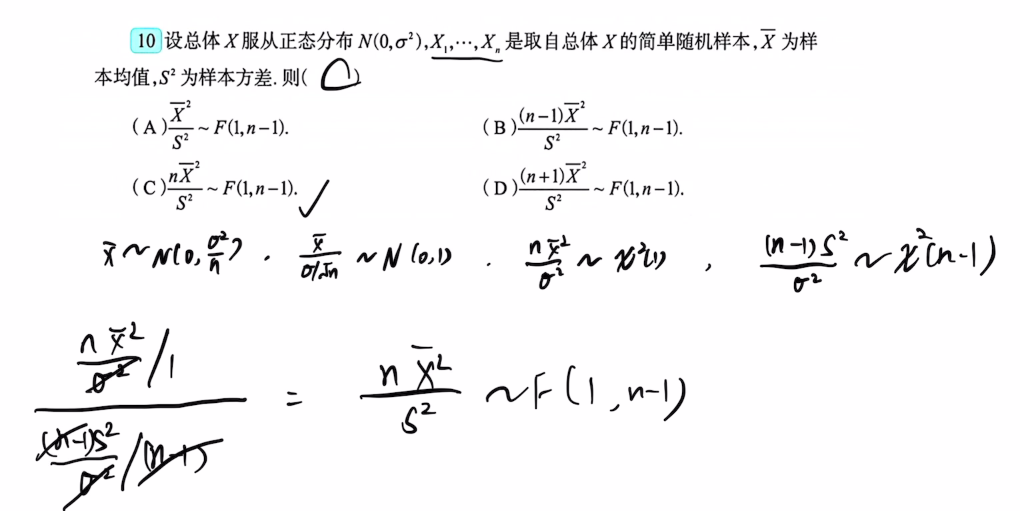 10 设总体 X 服从正态分布 N(0,σ²),X₁,⋯,Xₙ 是取自总体 X 的简单随机样本,X̄ 为样
本均值,S² 为样本方差. 则( )
(A) X̄²/S² ~ F(1,n−1). (B) (n−1)X̄²/S² ~ F(1,n−1).
(C) nX̄²/S² ~ F(1,n−1). ✓ (D) (n+1)X̄²/S² ~ F(1,n−1).
X̄ ~ N(0, σ²/n) . X̄/(σ/√n) ~ N(0,1) . nX̄²/σ² ~ χ²(1) , (n−1)S²/σ² ~ χ²(n−1)
(nX̄²/σ² / 1) / ((n−1)S²/σ² / (n−1)) = nX̄²/S² ~ F(1, n−1)